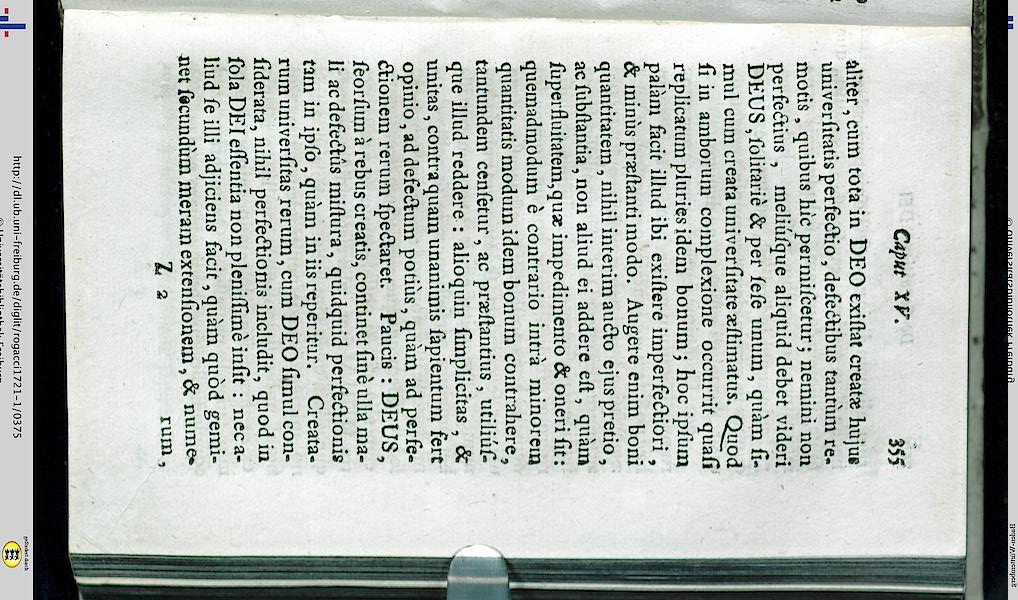 Caput XV 355
aliter, cum tota in DEO exiſtat creatæ hujus
univerſitatis perfectio, defectibus tantum re-
motis, quibus hìc permiſcetur; nemini non
perfectius, meliúſque aliquid debet videri
DEUS, ſolitariè & per ſeſe unum, quàm ſi-
mul cum creata univerſitate æſtimatus. Quod
ſi in amborum complexione occurrit quaſi
replicatum pluries idem bonum; hoc ipſum
palàm facit illud ibi exiſtere imperfectiori,
& minùs præſtanti modo. Augere enim boni
quantitatem, nihil interim aucto ejus pretio,
ac ſubſtantia, non aliud ei addere eſt, quàm
ſuperfluitatem, quæ impedimento & oneri ſit:
quemadmodum è contrario intrà minorem
quantitatis modum idem bonum contrahere,
tantundem cenſetur, ac præſtantius, utiliúſ-
que illud reddere: alioquin ſimplicitas, &
unitas, contra quam unanimis ſapientum fert
opinio, ad defectum potiùs, quàm ad perfe-
ctionem rerum ſpectaret. Paucis: DEUS,
ſeorſum à rebus creatis, continet ſinè ulla ma-
li ac defectûs miſtura, quidquid perfectionis
tam in ipſo, quàm in iis reperitur. Creata-
rum univerſitas rerum, cum DEO ſimul con-
ſiderata, nihil perfectionis includit, quod in
ſola DEI eſſentia non pleniſſimè inſit: nec a-
liud ſe illi adjiciens facit, quàm quòd gemi-
net ſecundùm meram extenſionem, & nume-
Z 2 rum,
http://dl.ub.uni-freiburg.de/diglit/rogacci1721-1/0375